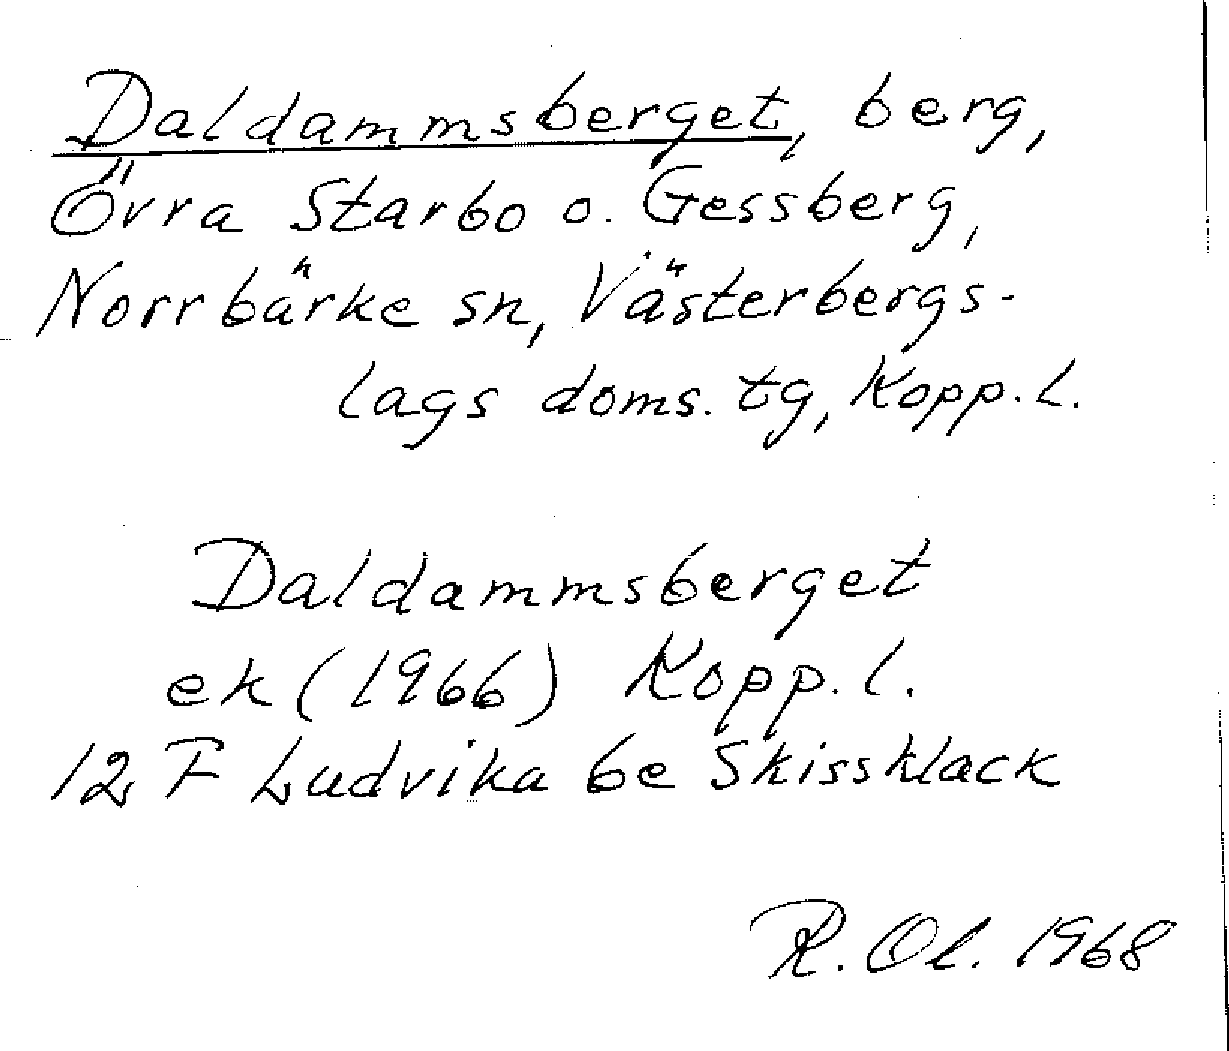 Daldammsberget, berg,
Övra Starbo o. Gessberg,
Norrbärke sn, Västerbergs-
lags doms. tg, Kopp. l.
Daldammsberget
ek (1966) Kopp. l.
12 F Ludvika be Skissklack
R. Ol. 1968